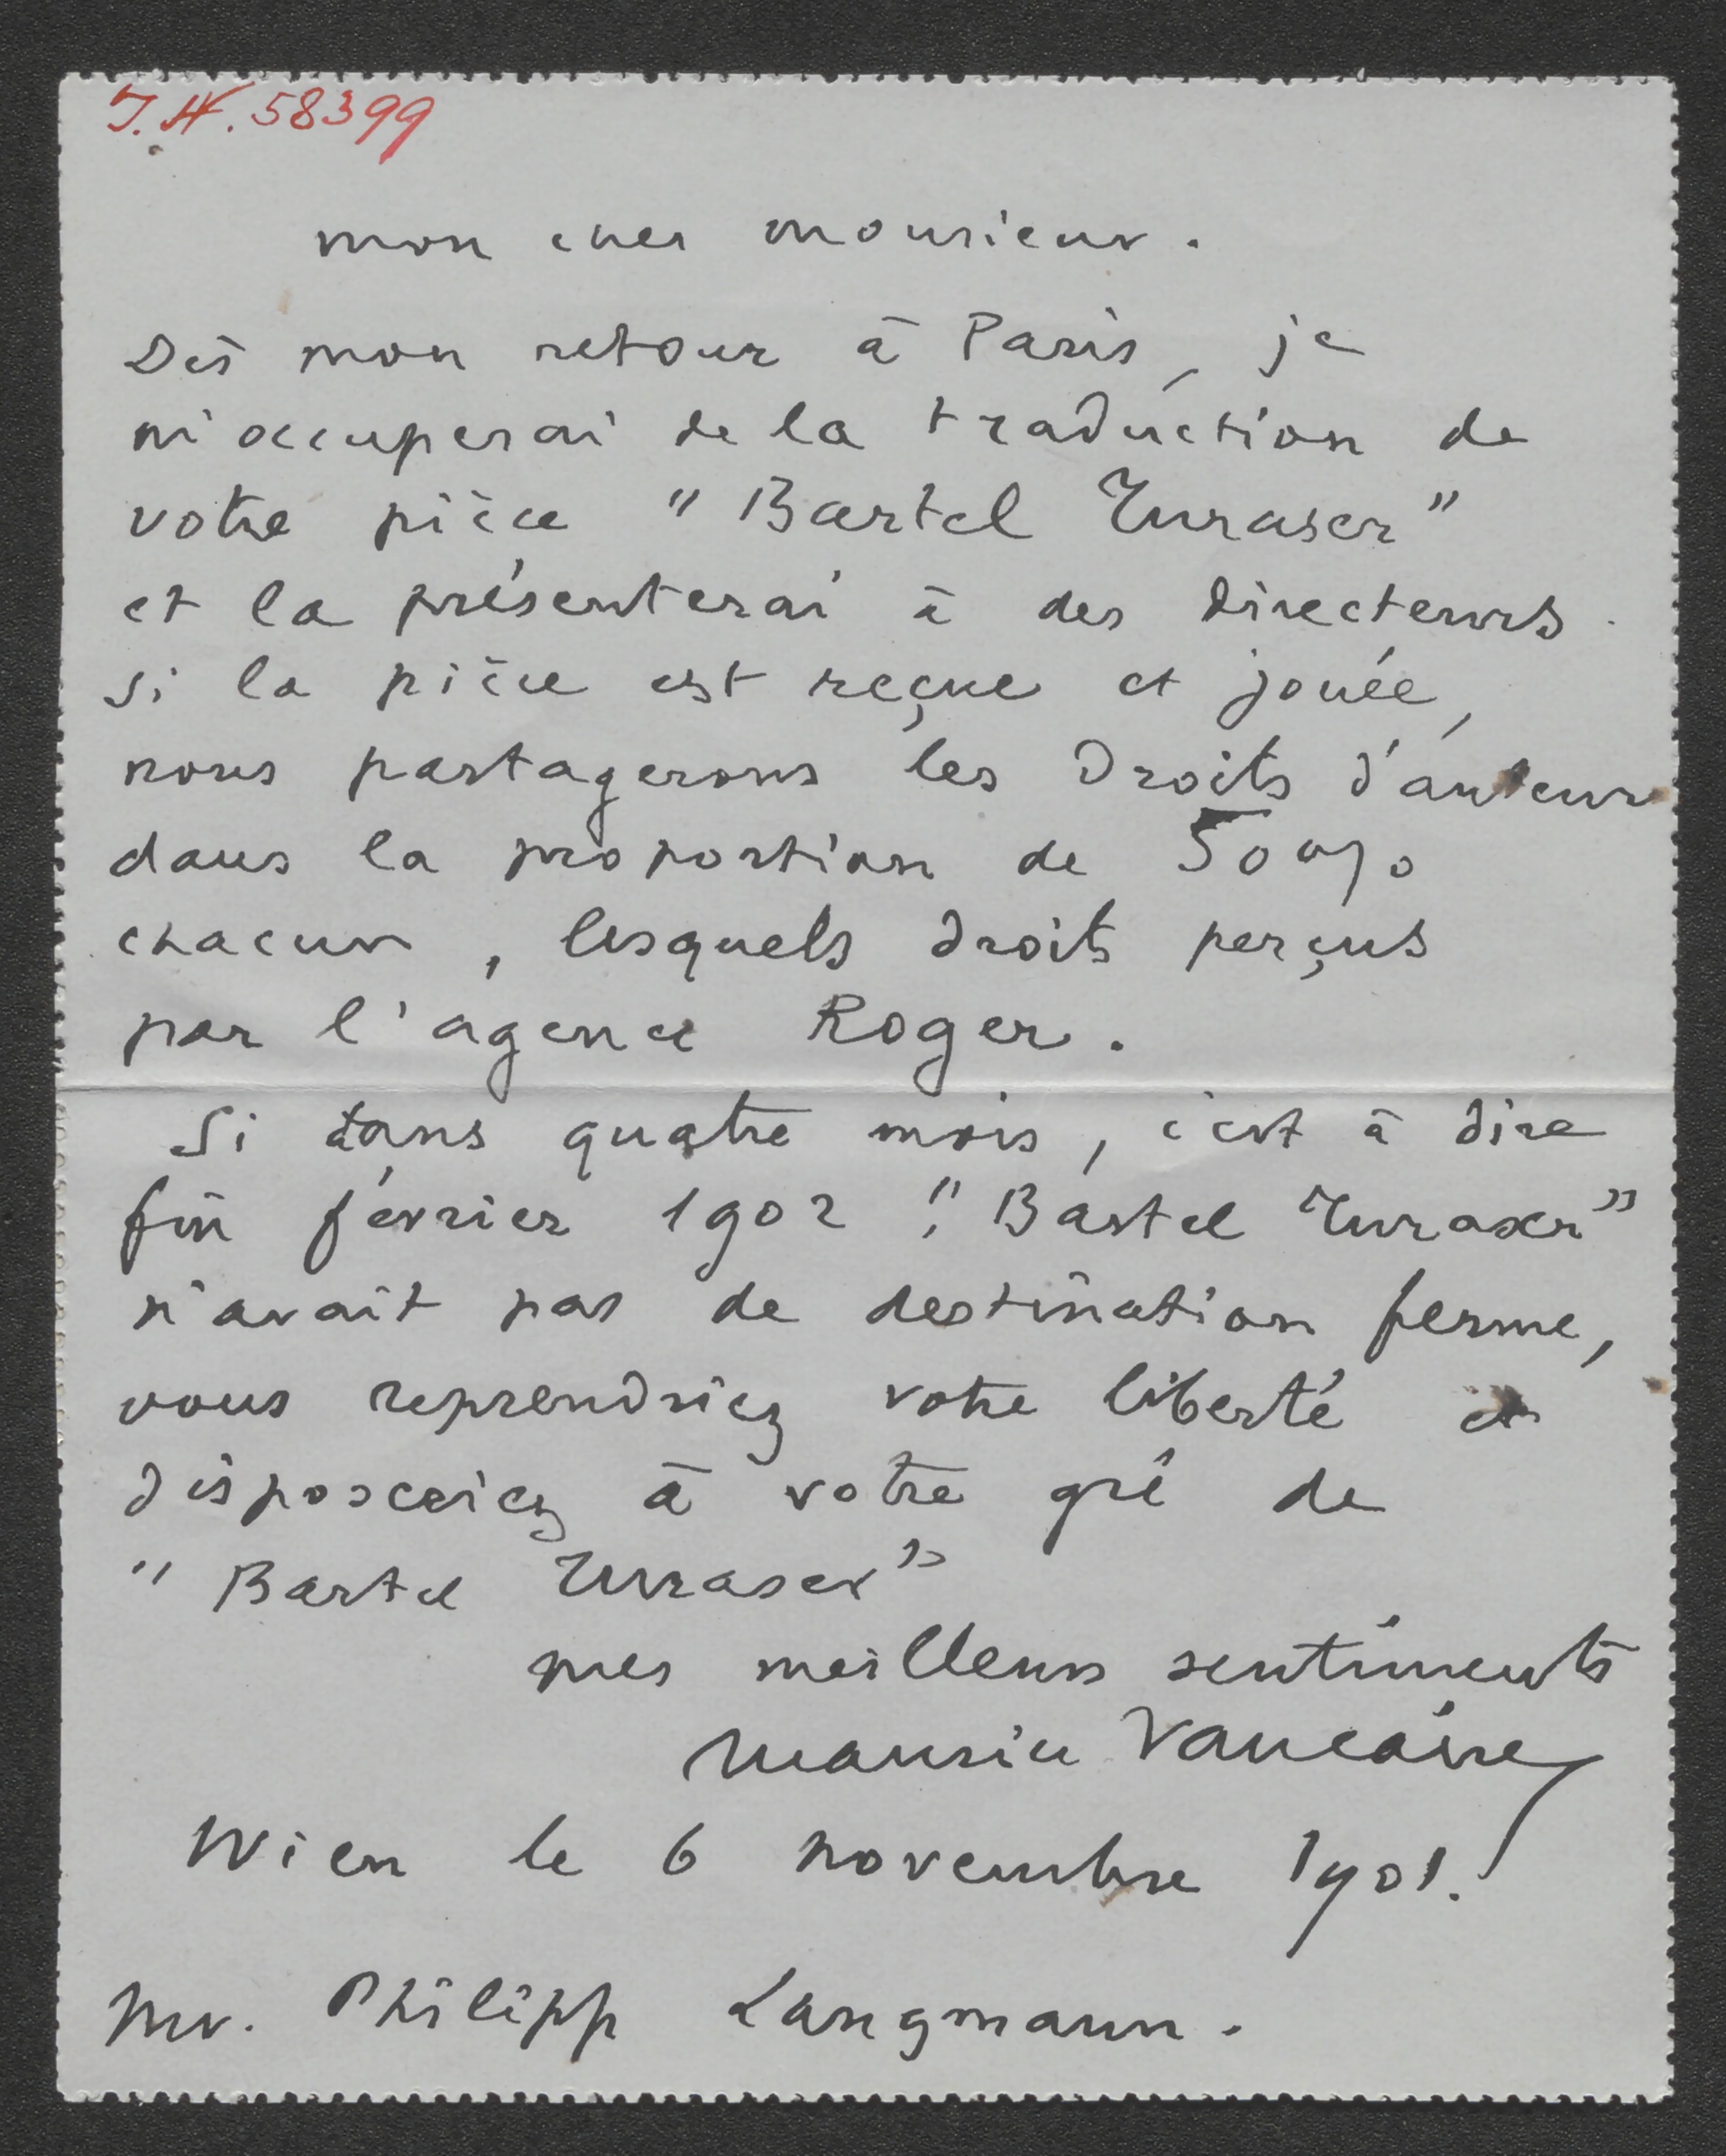 J. N. 58399
mon cher monsieur.
Dès mon retour à Paris, je
m'occuperai de la traduction de
votre pièce "Bartel Turaser"
et la présenterai à des directeurs.
Si la pièce est reçue et jouée,
nous partagerons les droits d'auteur
dans la proportion de 50 %
chacun, lesquels droits perçus
par l'agence Roger.
Si dans quatre mois, c'est à dire
fin février 1902, "Bartel Turaser"
n'avait pas de destination ferme,
vous reprendriez votre liberté et
disposeriez à votre gré de
"Bartel Turaser"
mes meilleurs sentiments
Maurice Vaucaire
Wien le 6 novembre 1901.
Mr. Philipp Langmann.